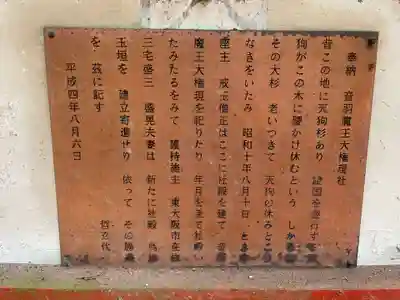 奉納 音羽魔王大権現社
昔この地に天狗杉あり 諸国を
狗がこの木に腰かけ休むという しかるに
その大杉 老いつきて 天狗の休みどころ
なきをいたみ 昭和十年八月十日
座主 戒玉僧正はここに社殿を建て
魔王大権現を祀りたり 年月を重ねて社殿い
たみたるをみて 護持施主 東大阪市在住
三宅善三 夫妻は 新たに社殿 鳥居
玉垣を 建立寄進せり 依って その
を 茲に記す
平成四年八月六日